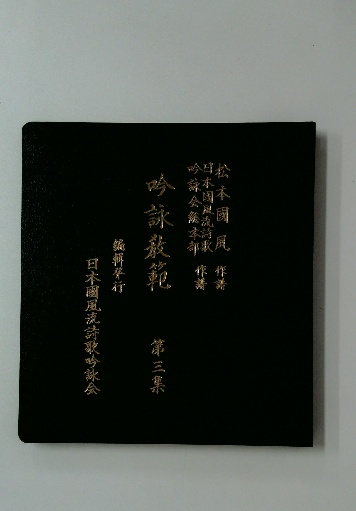 松本國風 作譜
日本國風流詩歌
吟詠会総本部 作譜
吟詠教範 第三集
編輯発行
日本國風流詩歌吟詠会